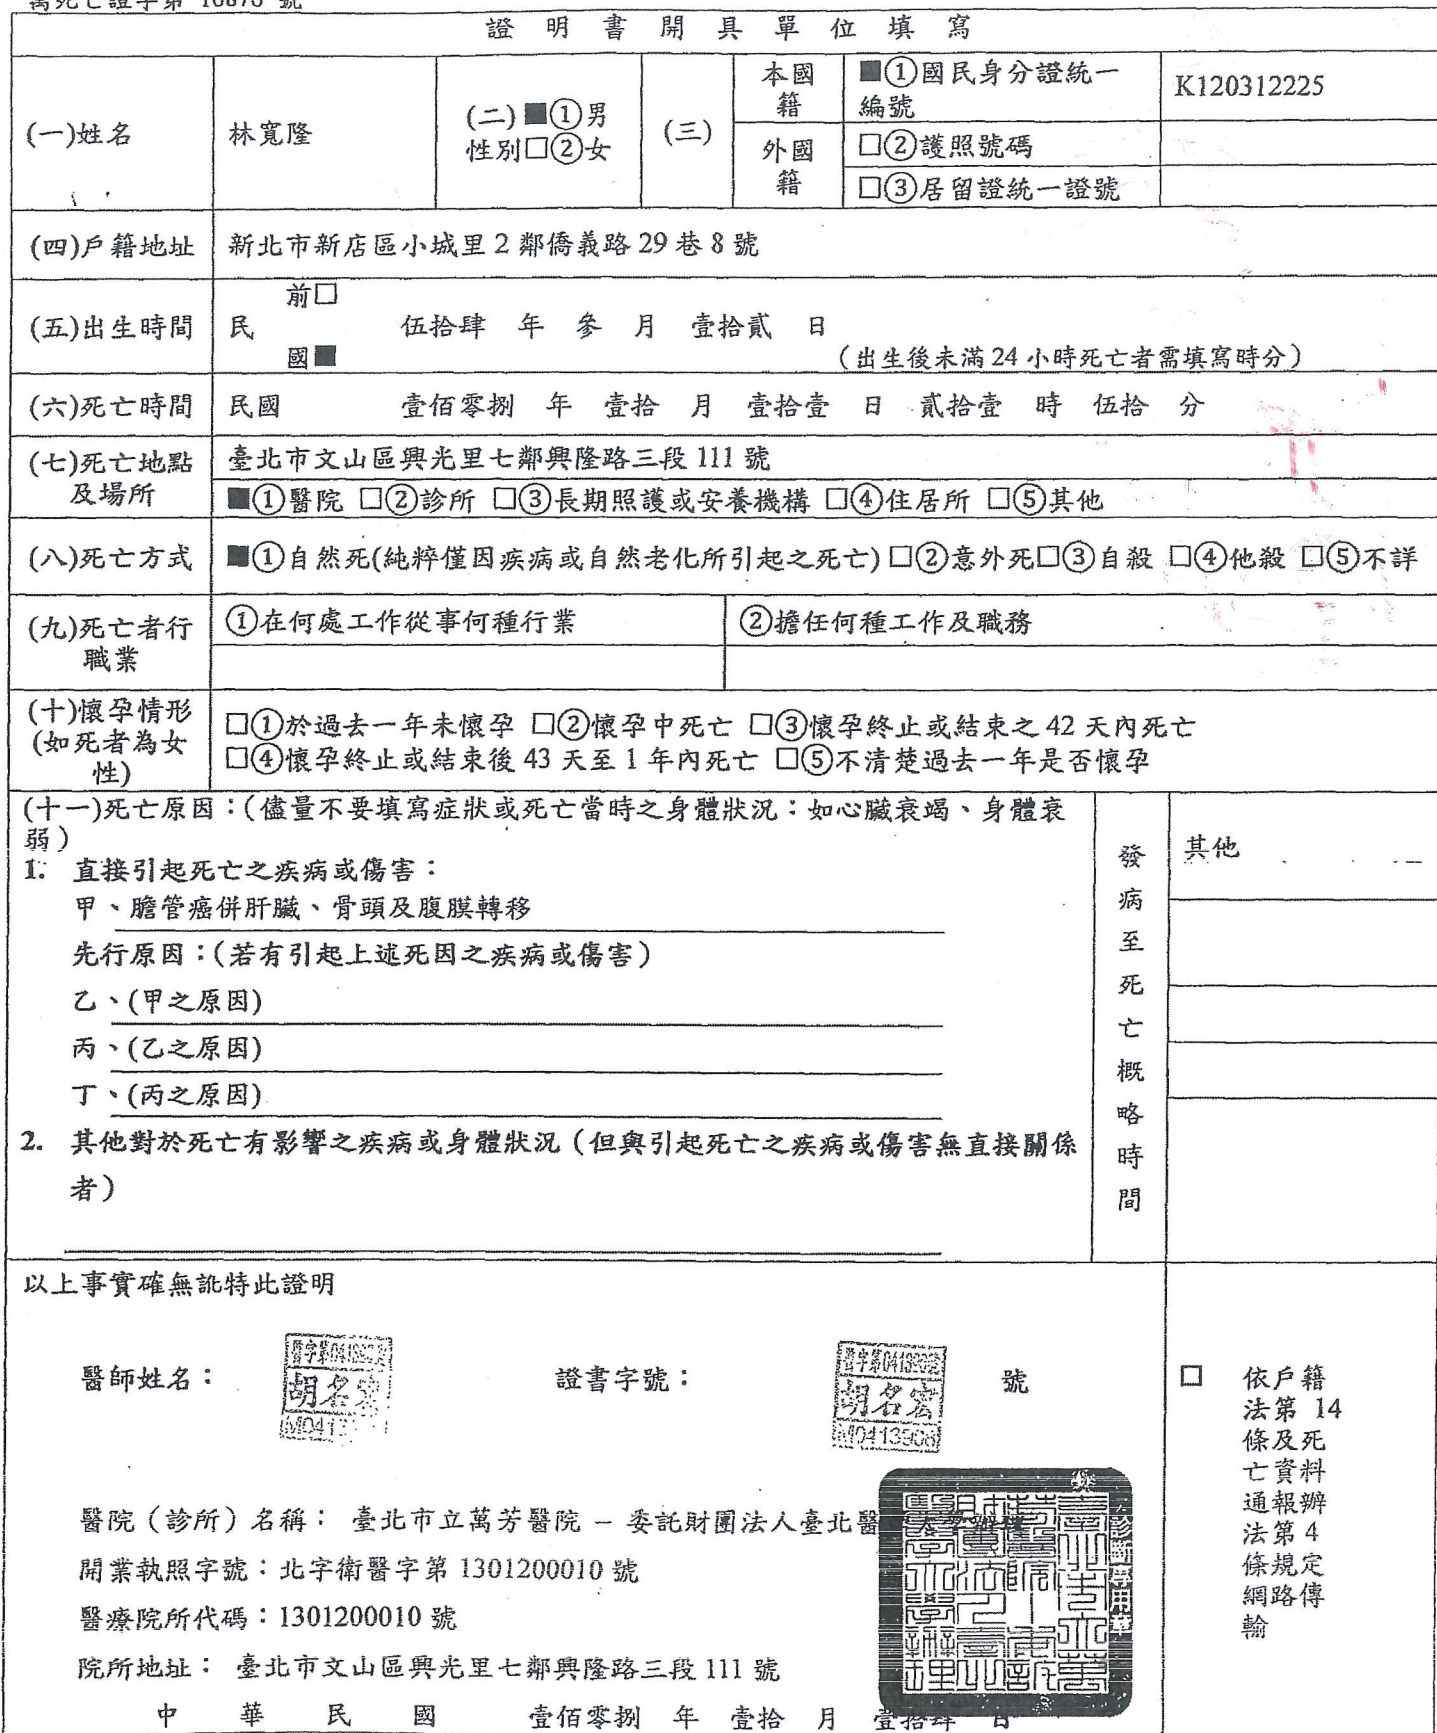 萬死亡證字第 10873 號
證 明 書 開 具 單 位 填 寫
(一)姓名 林寬隆 (二)■①男 性別□②女 (三) 本國籍 ■①國民身分證統一編號 K120312225
外國籍 □②護照號碼
□③居留證統一證號
(四)戶籍地址 新北市新店區小城里 2 鄰僑義路 29 巷 8 號
(五)出生時間 民 前□ 國■ 伍拾肆 年 參 月 壹拾貳 日
(出生後未滿 24 小時死亡者需填寫時分)
(六)死亡時間 民國 壹佰零捌 年 壹拾 月 壹拾壹 日 貳拾壹 時 伍拾 分
(七)死亡地點及場所 臺北市文山區興光里七鄰興隆路三段 111 號
■①醫院 □②診所 □③長期照護或安養機構 □④住居所 □⑤其他
(八)死亡方式 ■①自然死(純粹僅因疾病或自然老化所引起之死亡) □②意外死□③自殺 □④他殺 □⑤不詳
(九)死亡者行職業 ①在何處工作從事何種行業 ②擔任何種工作及職務
(十)懷孕情形(如死者為女性) □①於過去一年未懷孕 □②懷孕中死亡 □③懷孕終止或結束之 42 天內死亡
□④懷孕終止或結束後 43 天至 1 年內死亡 □⑤不清楚過去一年是否懷孕
(十一)死亡原因：(儘量不要填寫症狀或死亡當時之身體狀況：如心臟衰竭、身體衰
弱)
發病至死亡概略時間
其他
1. 直接引起死亡之疾病或傷害：
甲、膽管癌併肝臟、骨頭及腹膜轉移
先行原因：(若有引起上述死因之疾病或傷害)
乙、(甲之原因)
丙、(乙之原因)
丁、(丙之原因)
2. 其他對於死亡有影響之疾病或身體狀況（但與引起死亡之疾病或傷害無直接關係
者）
以上事實確無訛特此證明
醫師姓名： 胡名宏 證書字號： 胡名宏 號
□ 依戶籍
法第 14
條及死
亡資料
通報辦
法第 4
條規定
網路傳
輸
醫院（診所）名稱： 臺北市立萬芳醫院 – 委託財團法人臺北醫
開業執照字號：北字衛醫字第 1301200010 號
醫療院所代碼：1301200010 號
院所地址： 臺北市文山區興光里七鄰興隆路三段 111 號
中 華 民 國 壹佰零捌 年 壹拾 月 壹拾肆 日